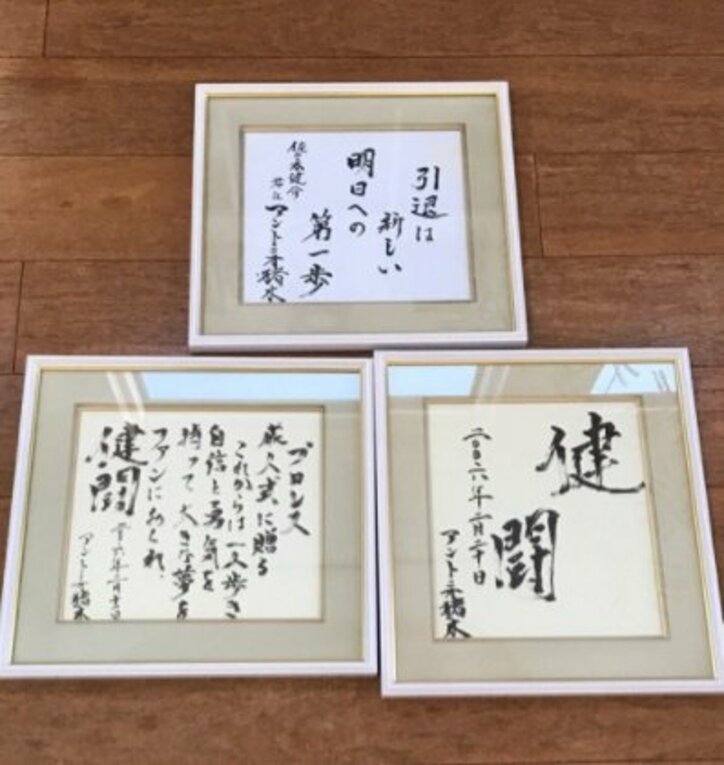 引退は
新しい
明日への
第一歩
佐々木健介
アントニオ猪木
プロレス
成人式に贈る
これからは一人歩き
自信と勇気を
持って大きな夢を
ファンにおくれ、
健闘
アントニオ猪木
健
闘
二〇〇六年二月二十日
アントニオ猪木